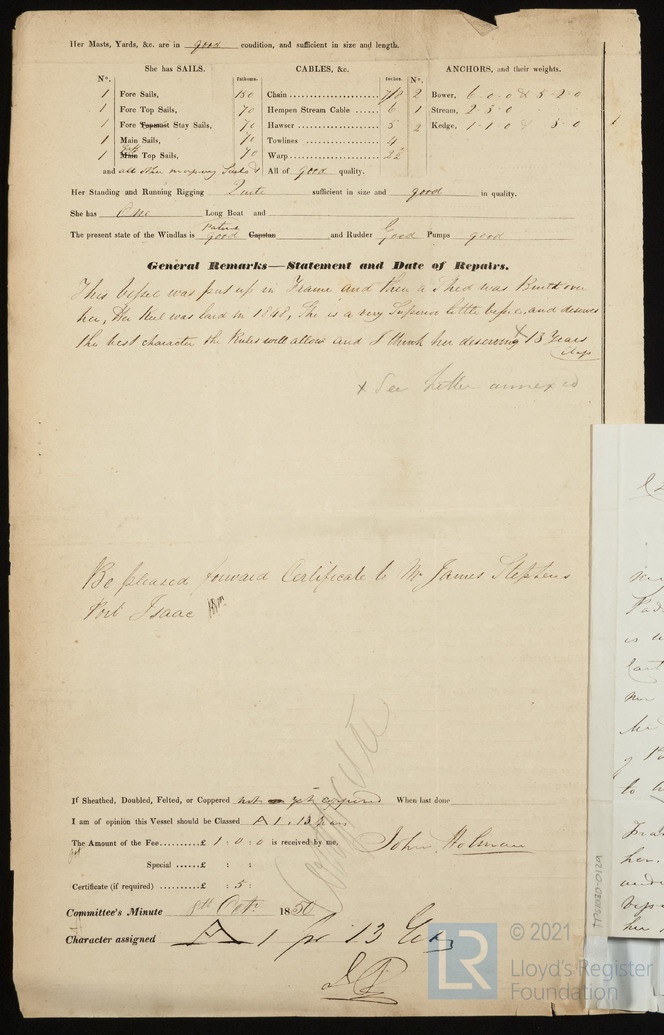 Her Masts, Yards, &c. are in good condition, and sufficient in size and length.
She has SAILS.
CABLES, &c.
ANCHORS, and their weights.
N°. Fathoms. Inches. N°.
1 Fore Sails, 150 Chain 7/8 2 Bower, 6-0-0 & 5-2-0
1 Fore Top Sails, 70 Hempen Stream Cable 6 1 Stream, 2-3-0
1 Fore Topmast Stay Sails, 70 Hawser 5 2 Kedge, 1-1-0 & 3-0
1 Main Sails, 70 Towlines 4
1 Main Top Sails, 70 Warp 2½
and all other Sails All of good quality.
Her Standing and Running Rigging Quite sufficient in size and good in quality.
She has One Long Boat and
The present state of the Windlas is Patent good Capstan and Rudder Good Pumps good
General Remarks—Statement and Date of Repairs.
This Vessel was put up in Frame and then a Shed was Built over
her, The Keel was laid in 1848, She is a very Superior little Vessel, and deserves
the best character the Rules will allow and I think her deserving x 13 Years
x See Letter annexed
Be pleased forward Certificate to Mr James Stephens
Port Isaac
If Sheathed, Doubled, Felted, or Coppered not yet coppered When last done
I am of opinion this Vessel should be Classed A 1. 13 Years
The Amount of the Fee......£ 1 : 0 : 0 is received by me, John Holman
Special ......£ : :
Certificate (if required) ..........£ : 5 :
Committee's Minute 8th Octr. 1850
Character assigned A 1 for 13 Years
© 2021
LR Lloyd's Register
Foundation